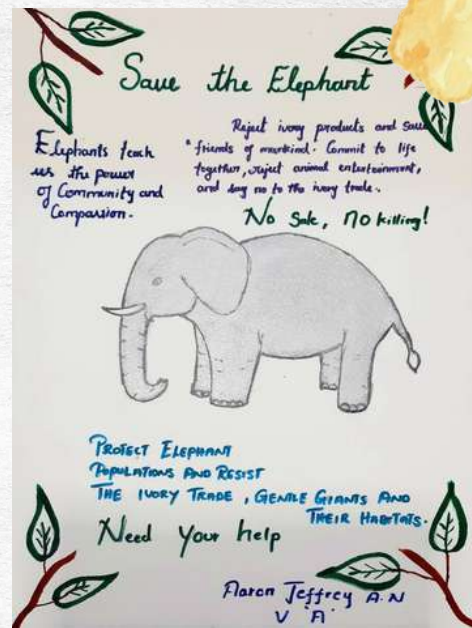 Save the Elephant
Elephants teach
us the power
of Community and
Compassion.
Reject ivory products and save
friends of mankind. Commit to life
together, reject animal entertainment,
and say no to the ivory trade.
No Sale, No killing!
PROTECT ELEPHANT
POPULATIONS AND RESIST
THE IVORY TRADE, GENTLE GIANTS AND
THEIR HABITATS.
Need Your help
Aaron Jeffrey A.N
V 'A'